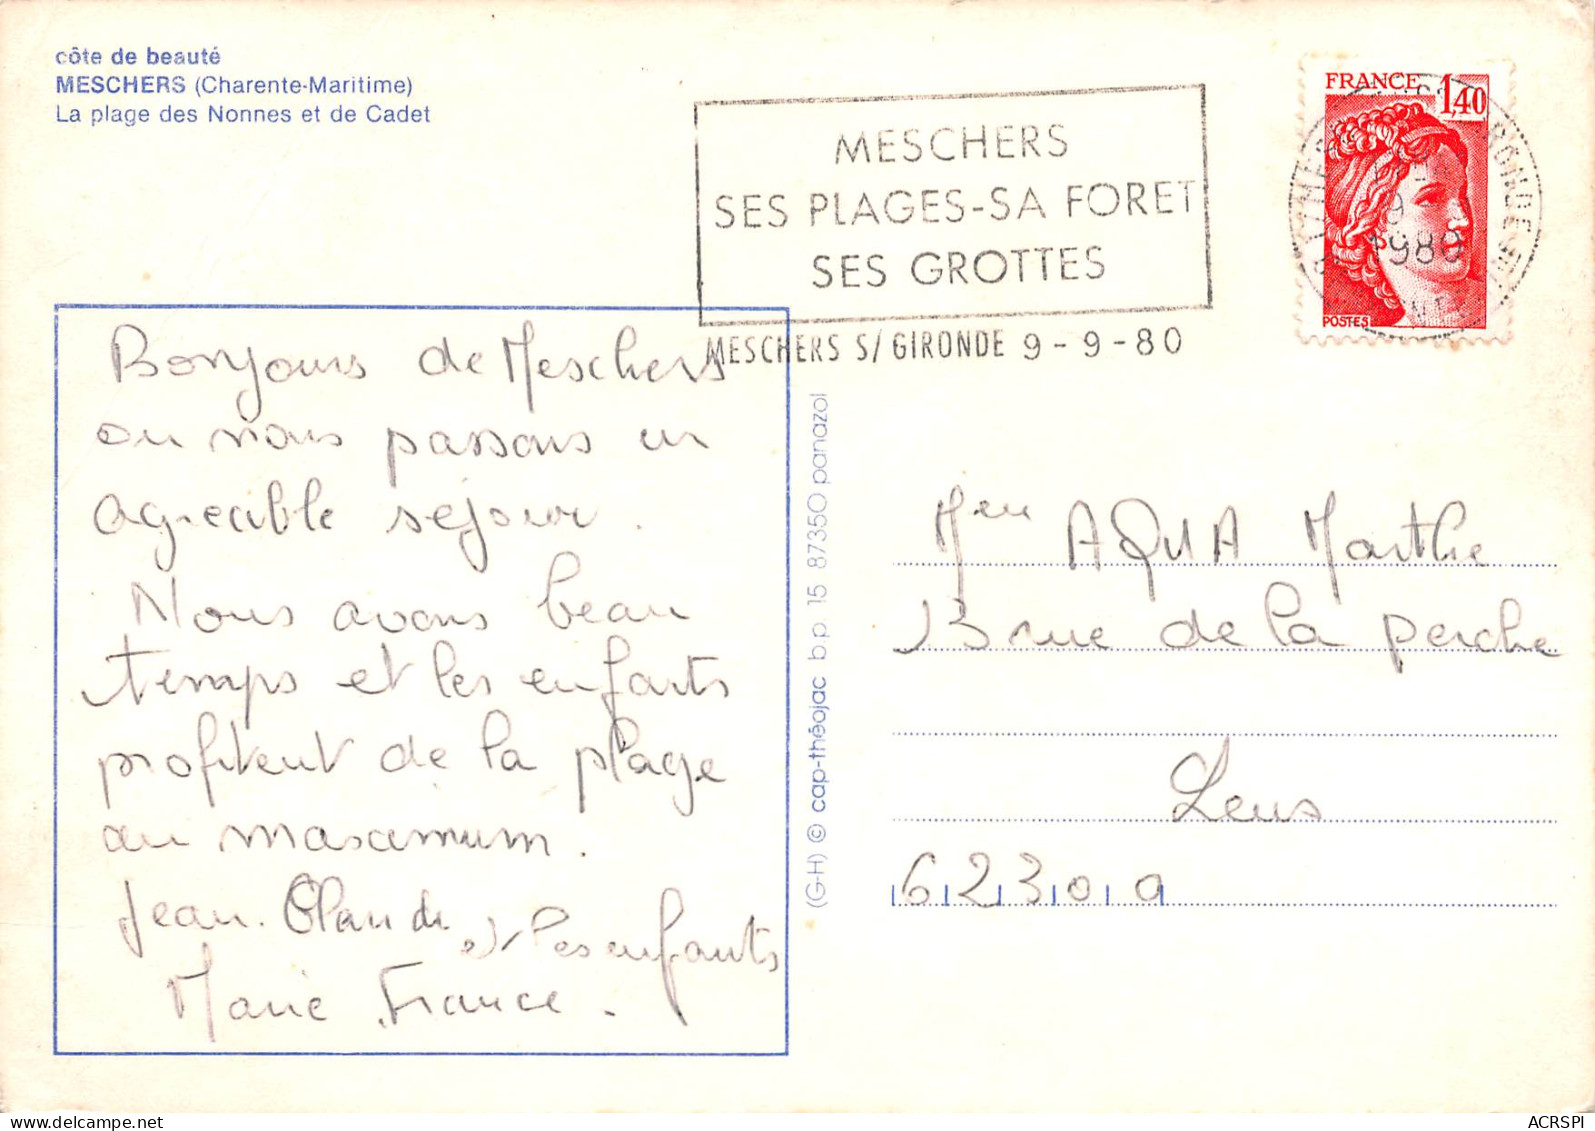 côte de beauté
MESCHERS (Charente-Maritime)
La plage des Nonnes et de Cadet
MESCHERS
SES PLAGES-SA FORET
SES GROTTES
MESCHERS S/ GIRONDE 9 - 9 - 80
FRANCE 1,40
1980
POSTES
Bonjours de Meschers
ou nous passons un
agreable séjour.
Nous avons beau
temps et les enfants
profitent de la plage
au maxcimum.
Jean. Claude
et les enfants
Marie France.
(G-H) © cap-théojac b p 15 87350 panazol
Mme AQUA Marthe
13 rue de la perche
Lens
62300
ACRSPI